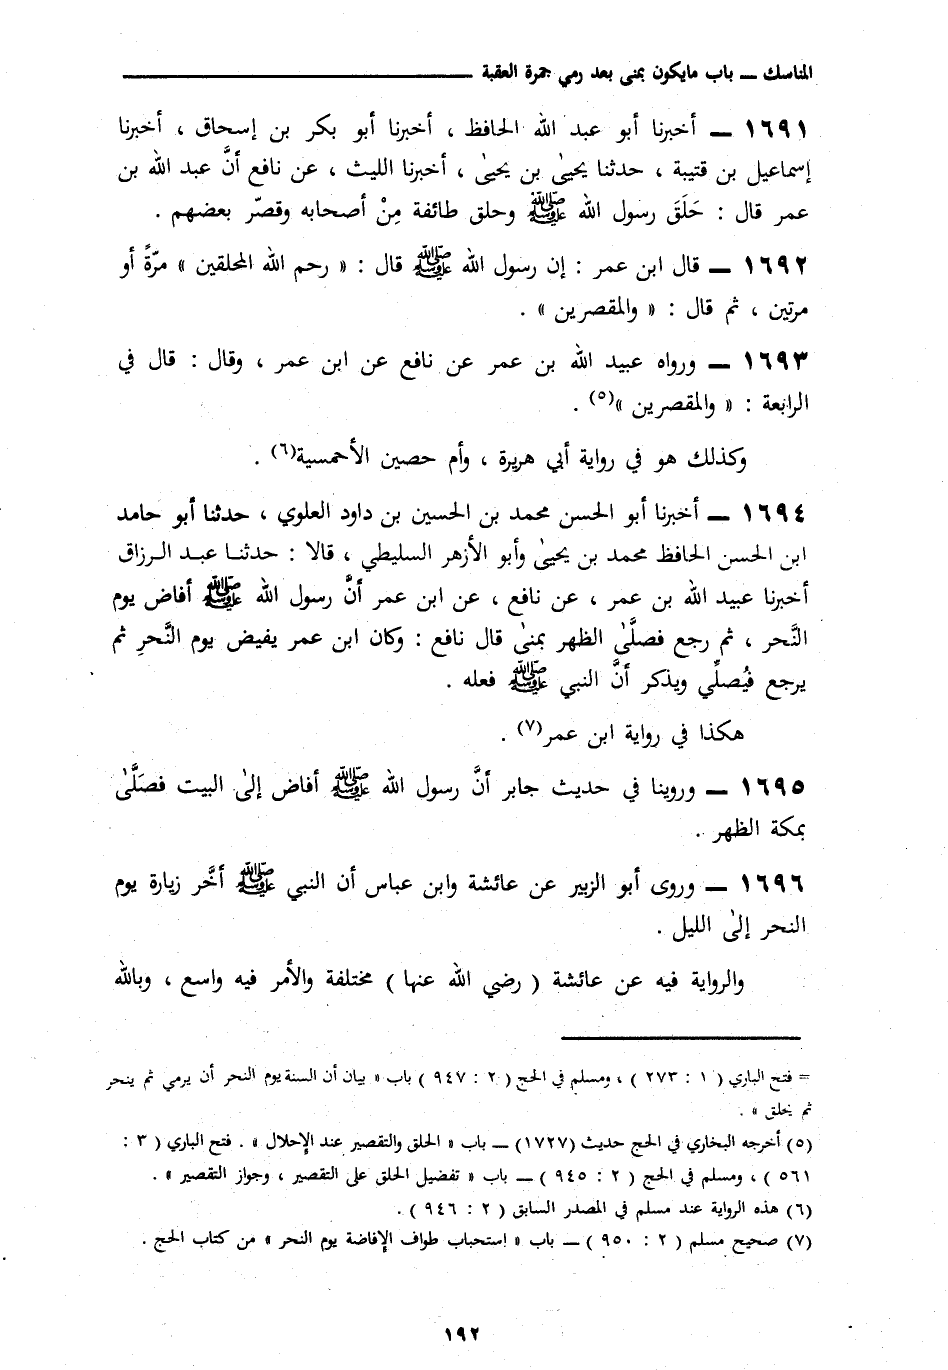 المناسك ــ باب مايكون بمنى بعد رمي جمرة العقبة
١٦٩١ ــ أخبرنا أبو عبد الله الحافظ ، أخبرنا أبو بكر بن إسحاق ، أخبرنا
إسماعيل بن قتيبة ، حدثنا يحيىٰ بن يحيىٰ ، أخبرنا الليث ، عن نافع أنَّ عبد الله بن
عمر قال : حَلَقَ رسول الله ﷺ وحلق طائفة مِنْ أصحابه وقصّر بعضهم .
١٦٩٢ ــ قال ابن عمر : إن رسول الله ﷺ قال : « رحم الله المحلقين » مرّةً أو
مرتين ، ثم قال : « والمقصرين » .
١٦٩٣ ــ ورواه عبيد الله بن عمر عن نافع عن ابن عمر ، وقال : قال في
الرابعة : « والمقصرين »(٥) .
وكذلك هو في رواية أبي هريرة ، وأم حصين الأحمسية(٦) .
١٦٩٤ ــ أخبرنا أبو الحسن محمد بن الحسين بن داود العلوي ، حدثنا أبو حامد
ابن الحسن الحافظ محمد بن يحيىٰ وأبو الأزهر السليطي ، قالا : حدثنـا عبـد الـرزاق
أخبرنا عبيد الله بن عمر ، عن نافع ، عن ابن عمر أنَّ رسول الله ﷺ أفاض يوم
النَّحر ، ثم رجع فصلَّىٰ الظهر بمنىٰ قال نافع : وكان ابن عمر يفيض يوم النَّحرِ ثم
يرجع فيُصلِّي ويذكر أنَّ النبي ﷺ فعله .
هكذا في رواية ابن عمر(٧) .
١٦٩٥ ــ وروينا في حديث جابر أنَّ رسول الله ﷺ أفاض إلىٰ البيت فصَلَّىٰ
بمكة الظهر .
١٦٩٦ ــ وروى أبو الزبير عن عائشة وابن عباس أن النبي ﷺ أخَّر زيارة يوم
النحر إلىٰ الليل .
والرواية فيه عن عائشة ( رضي الله عنها ) مختلفة والأمر فيه واسع ، وبالله
= فتح الباري ( ١ : ٢٧٣ ) ، ومسلم في الحج ( ٢ : ٩٤٧ ) باب « بيان أن السنة يوم النحر أن يرمي ثم ينحر
ثم يحلق » .
(٥) أخرجه البخاري في الحج حديث (١٧٢٧) ــ باب « الحلق والتقصير عند الإحلال » . فتح الباري ( ٣ :
٥٦١ ) ، ومسلم في الحج ( ٢ : ٩٤٥ ) ــ باب « تفضيل الحلق على التقصير ، وجواز التقصير » .
(٦) هذه الرواية عند مسلم في المصدر السابق ( ٢ : ٩٤٦ ) .
(٧) صحيح مسلم ( ٢ : ٩٥٠ ) ــ باب « إستحباب طواف الإفاضة يوم النحر » من كتاب الحج .
١٩٢